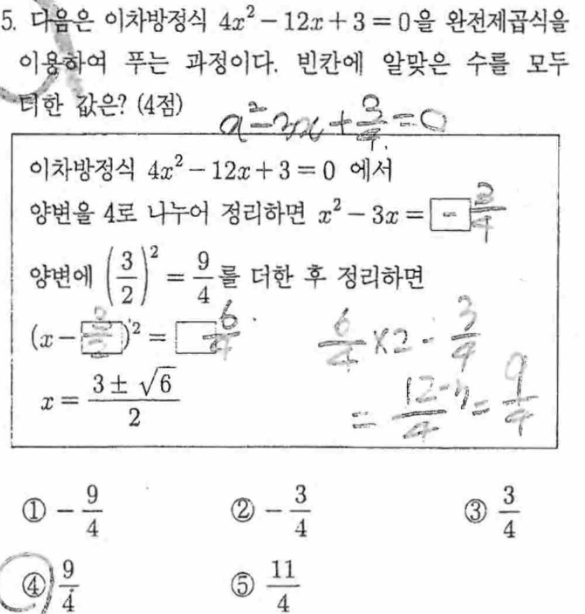 5. 다음은 이차방정식 4x² − 12x + 3 = 0을 완전제곱식을
이용하여 푸는 과정이다. 빈칸에 알맞은 수를 모두
더한 값은? (4점)
x² − 3x + 3/4 = 0
이차방정식 4x² − 12x + 3 = 0 에서
양변을 4로 나누어 정리하면 x² − 3x = □ − 3/4
양변에 (3/2)² = 9/4를 더한 후 정리하면
(x − □ 3/2)² = □ 6/4
6/4 × 2 − 3/4
x = (3 ± √6)/2
= (12−3)/4 = 9/4
① − 9/4 ② − 3/4 ③ 3/4
④ 9/4 ⑤ 11/4